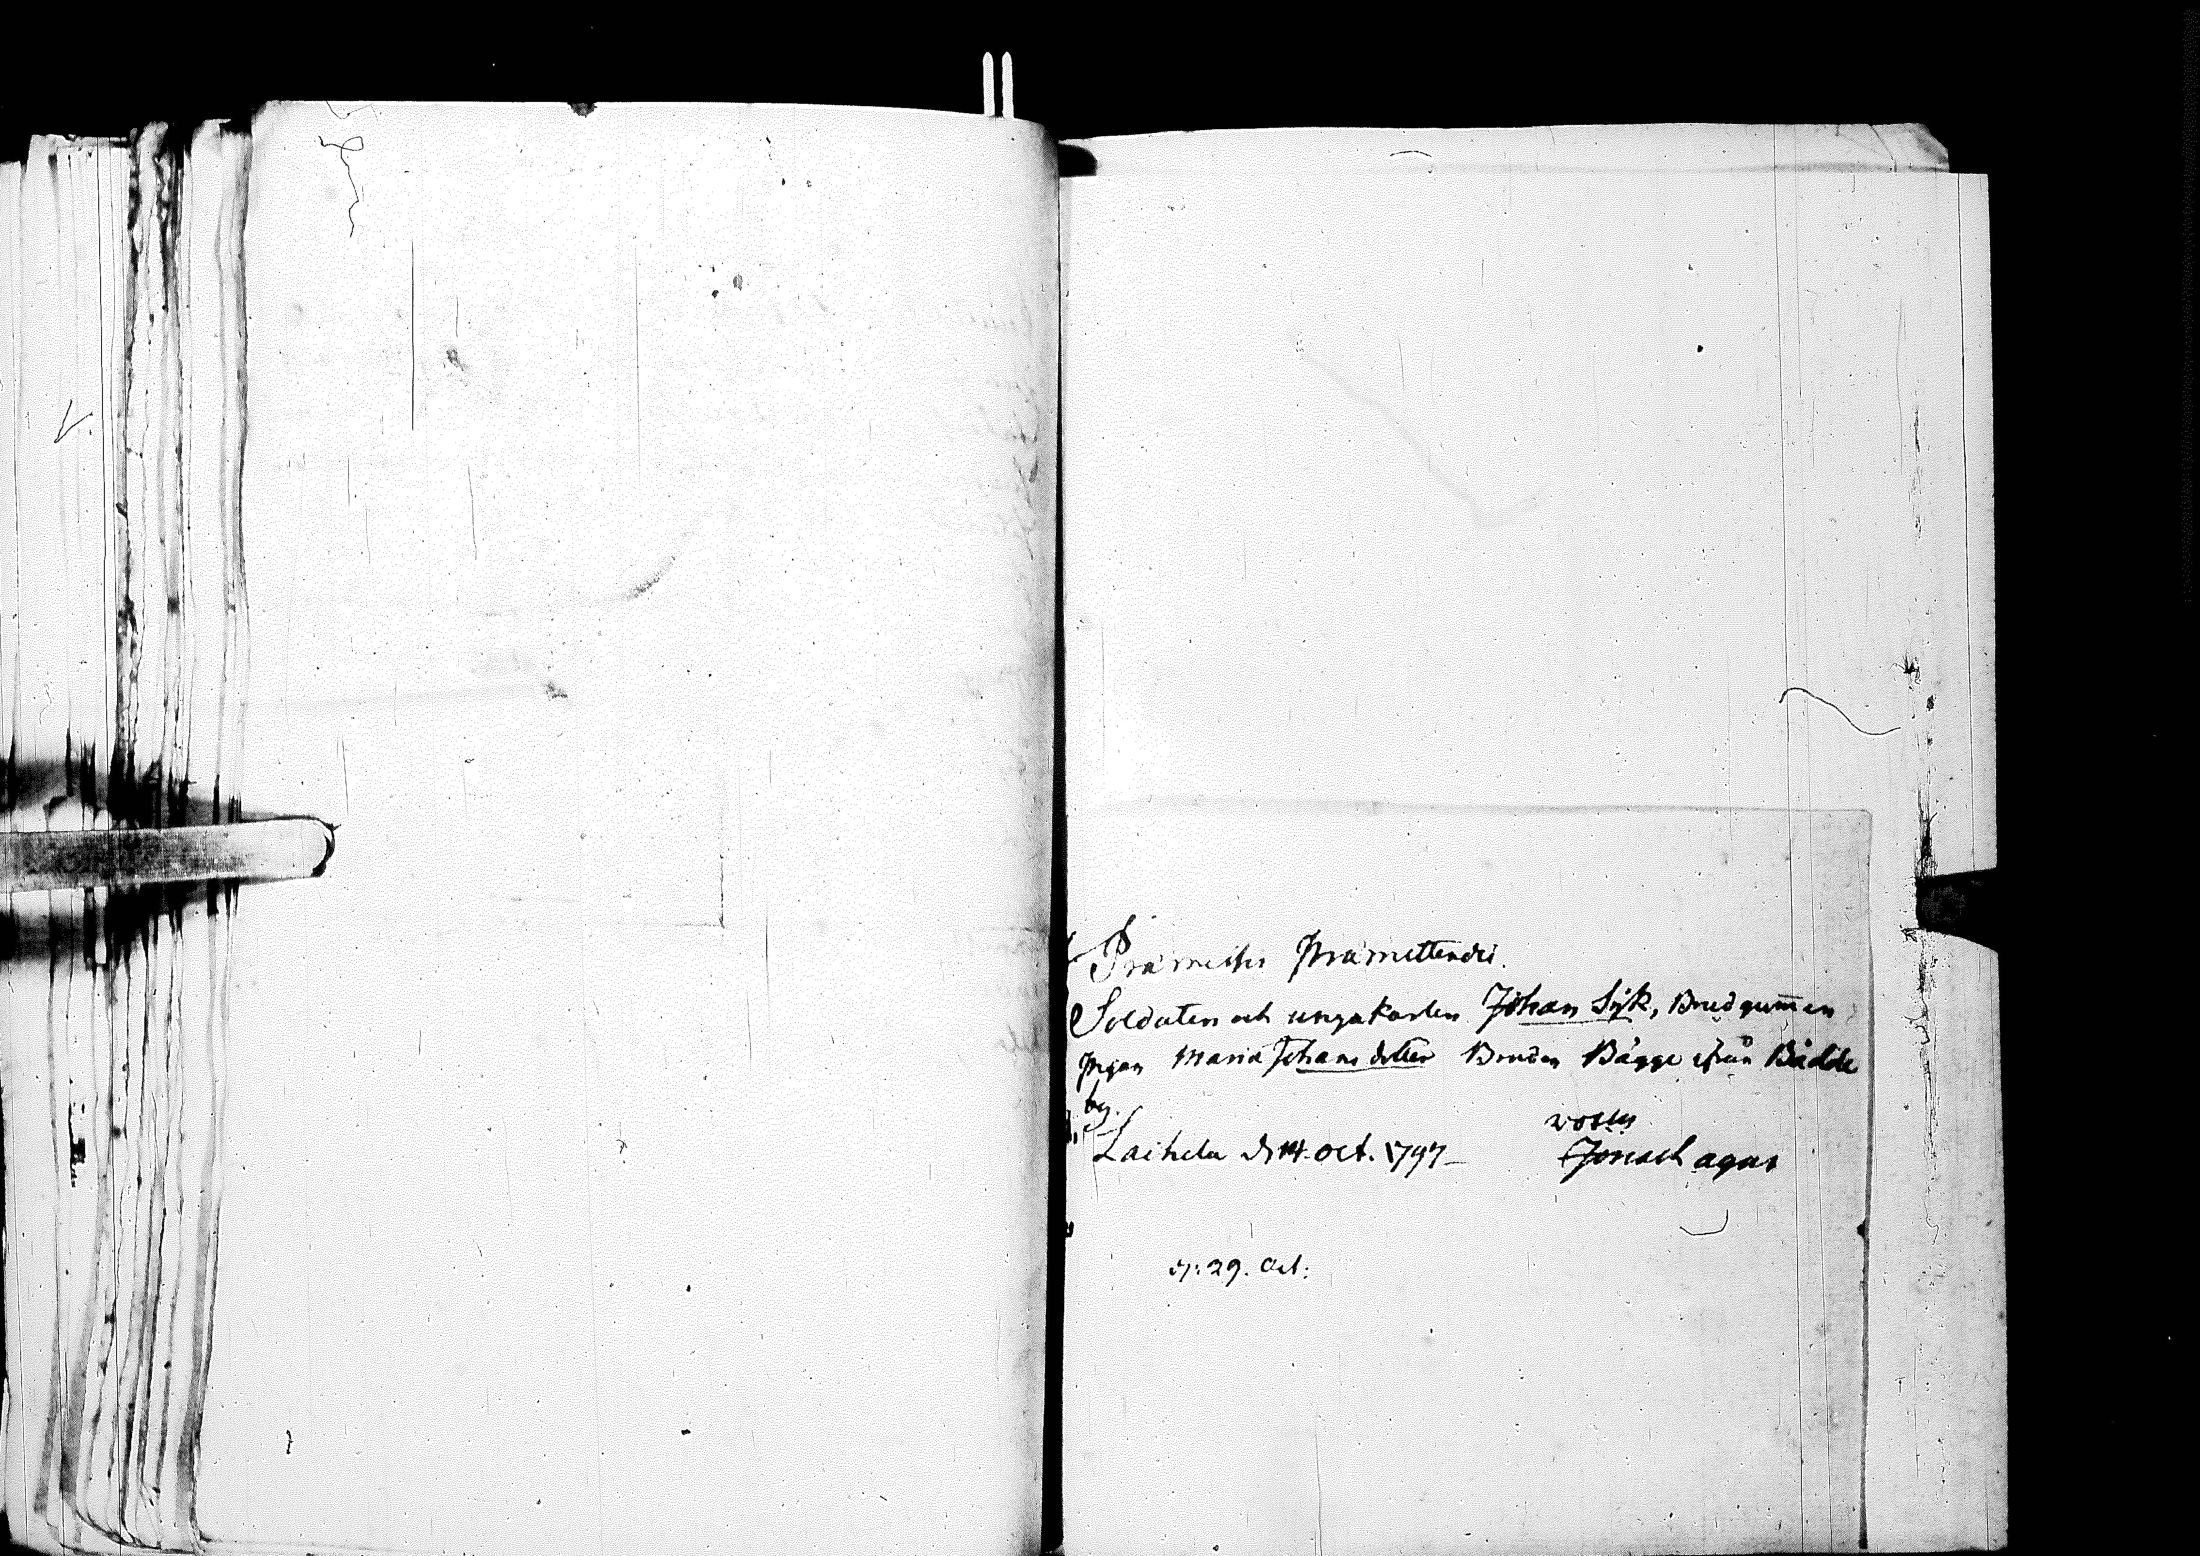 Præmissis Præmittendis.
Soldaten och ungakarlen Johan Sÿk, Brudgummen
pigan Maria Johansdotter Bruden Bägge ifrån Bådde
by.
Laihela d 14. Oct. 1797_
d: 29. Oct: